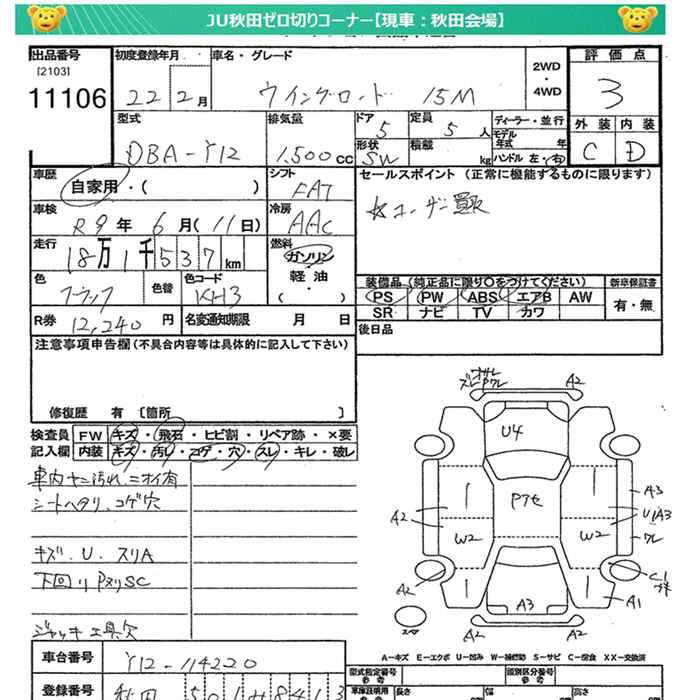 JU秋田ゼロ切りコーナー【現車：秋田会場】
出品番号 [2103] 11106
初度登録年月 22年2月
車名・グレード ウイングロード 15M
2WD・4WD
評価点 3
型式 DBA-Y12
排気量 1,500cc
ドア 5
定員 5人
ディーラー・並行
モデル年式 年
形状 SW
積載 kg
ハンドル 左・右
外装 C
内装 D
車歴 自家用・( )
シフト FAT
セールスポイント (正常に機能するものに限ります)
☆ユーザー買取
車検 R9年6月(11日)
冷房 AAC
走行 18万1千537km
燃料 ガソリン・軽油・( )
色 ブラック
色替
色コード KH3
装備品 (純正品に限り○をつけてください)
新車保証書 有・無
PS PW ABS エアB AW
SR ナビ TV カワ
R券 12,240円
名変通知期限 月 日
後日品
注意事項申告欄(不具合内容等は具体的に記入して下さい)
修復歴 有 [箇所 ]
検査員記入欄
FW キズ・飛石・ヒビ割・リペア跡・×要
内装 キズ・汚れ・コゲ・穴・スレ・キレ・破レ
車内ヤニ汚れ、ニオイ有
シートヘタリ、コゲ穴
キズ.U.スリA
下回りPヌリSC
ジャッキ工具欠
A2
U4
Pアセ
A3
U1A3
ワレ
W2 W2
A2
A2
C1
A1
A3
スペア
A2
A2
A－キズ E－エクボ U－凹み W－補修跡 S－サビ C－腐食 XX－交換済
車台番号 Y12-114220
型式指定番号
類別区分番号
登録番号 秋田 501 H 8413
長さ cm
幅 cm
高さ cm